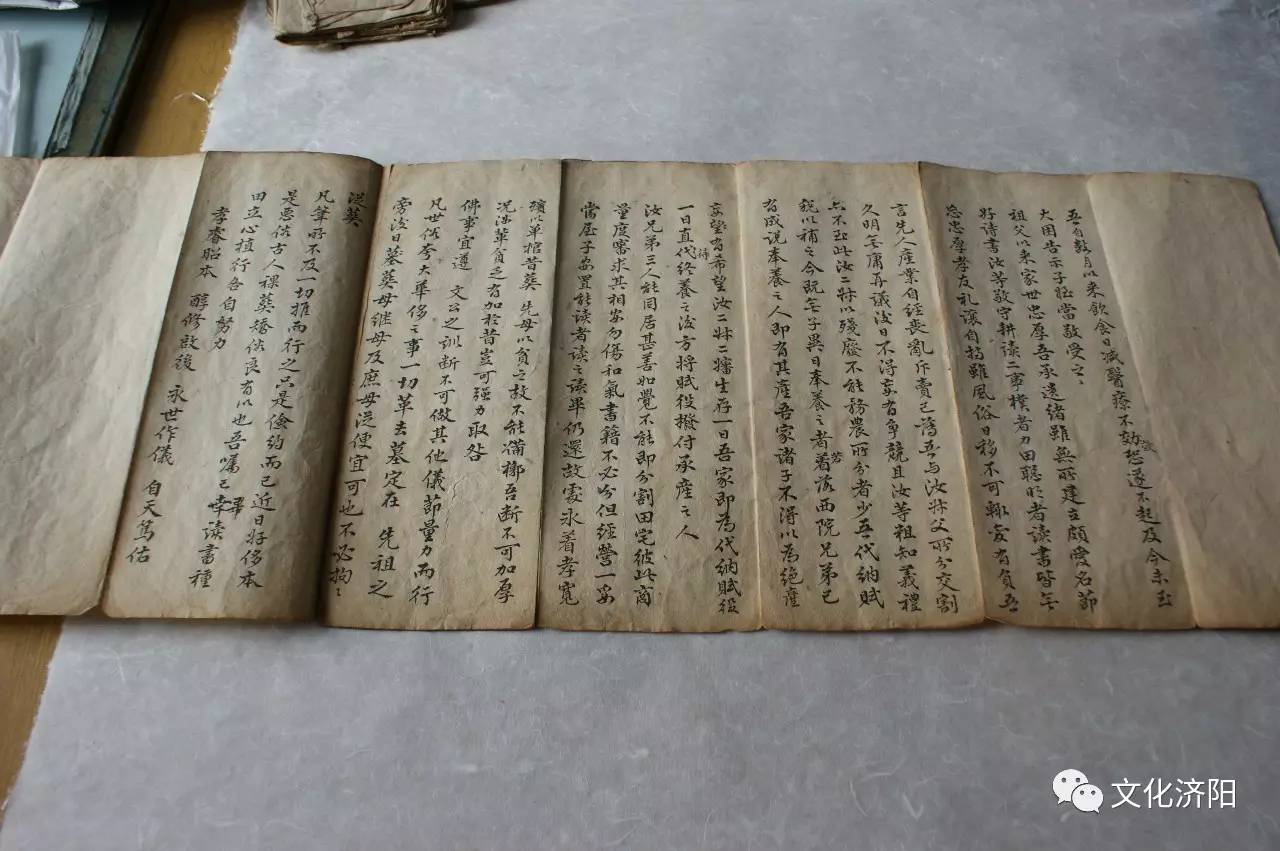 吾自數月以來飲食日減醫療不效恐遂不起及今未至
大困告示子姪當敬受之
祖父以來家世忠厚吾承遺緒雖無所建立頗愛名節
好詩書汝等敬守耕讀二事樸者力田聰明者讀書皆無
忘忠厚孝友禮讓自持雖風俗日移不可輒變有負吾
言先人產業自經喪亂斥賣已蕩吾與汝叔父所分交割
久明無庸再議後日不得妄有爭競且汝等粗知義禮
亦不至此汝二叔以殘廢不能務農所分者少吾代納賦
稅以補之今既無子異日奉養之者若著落西院兄弟已
有成說奉養之人即有其產吾家諸子不得以為絕產
妄望有希望汝二叔二嬸生存一日吾家即為代納賦役
一日直待代終養之後方將賦役撥付承產之人
汝兄弟三人能同居甚善如覺不能即分割田宅彼此商
量度審求其相安勿傷和氣書籍不必分但經營一妥
當屋子安置能讀者讀之讀畢仍還故處永著孝寬
殯以單棺昔葬 先母以貧之故不能備槨吾斷不可加厚
況涉革貧乏有加於昔豈可強力取咎
佛事宜遵 文公之訓斷不可做其他儀節量力而行
凡世俗夸大華侈之事一切革去墓定在 先祖之
旁後日墓葬母繼母及庶母從便宜可也不必拘拘
從葬
凡筆所不及一切推而行之只是儉約而已近日好侈本
是惡俗古人裸葬矯俗良有以也吾囑已畢幸在讀書種
田立心植行各自努力
孝睿昭本 醇修啟後 永世作儀 自天篤佑
文化济阳